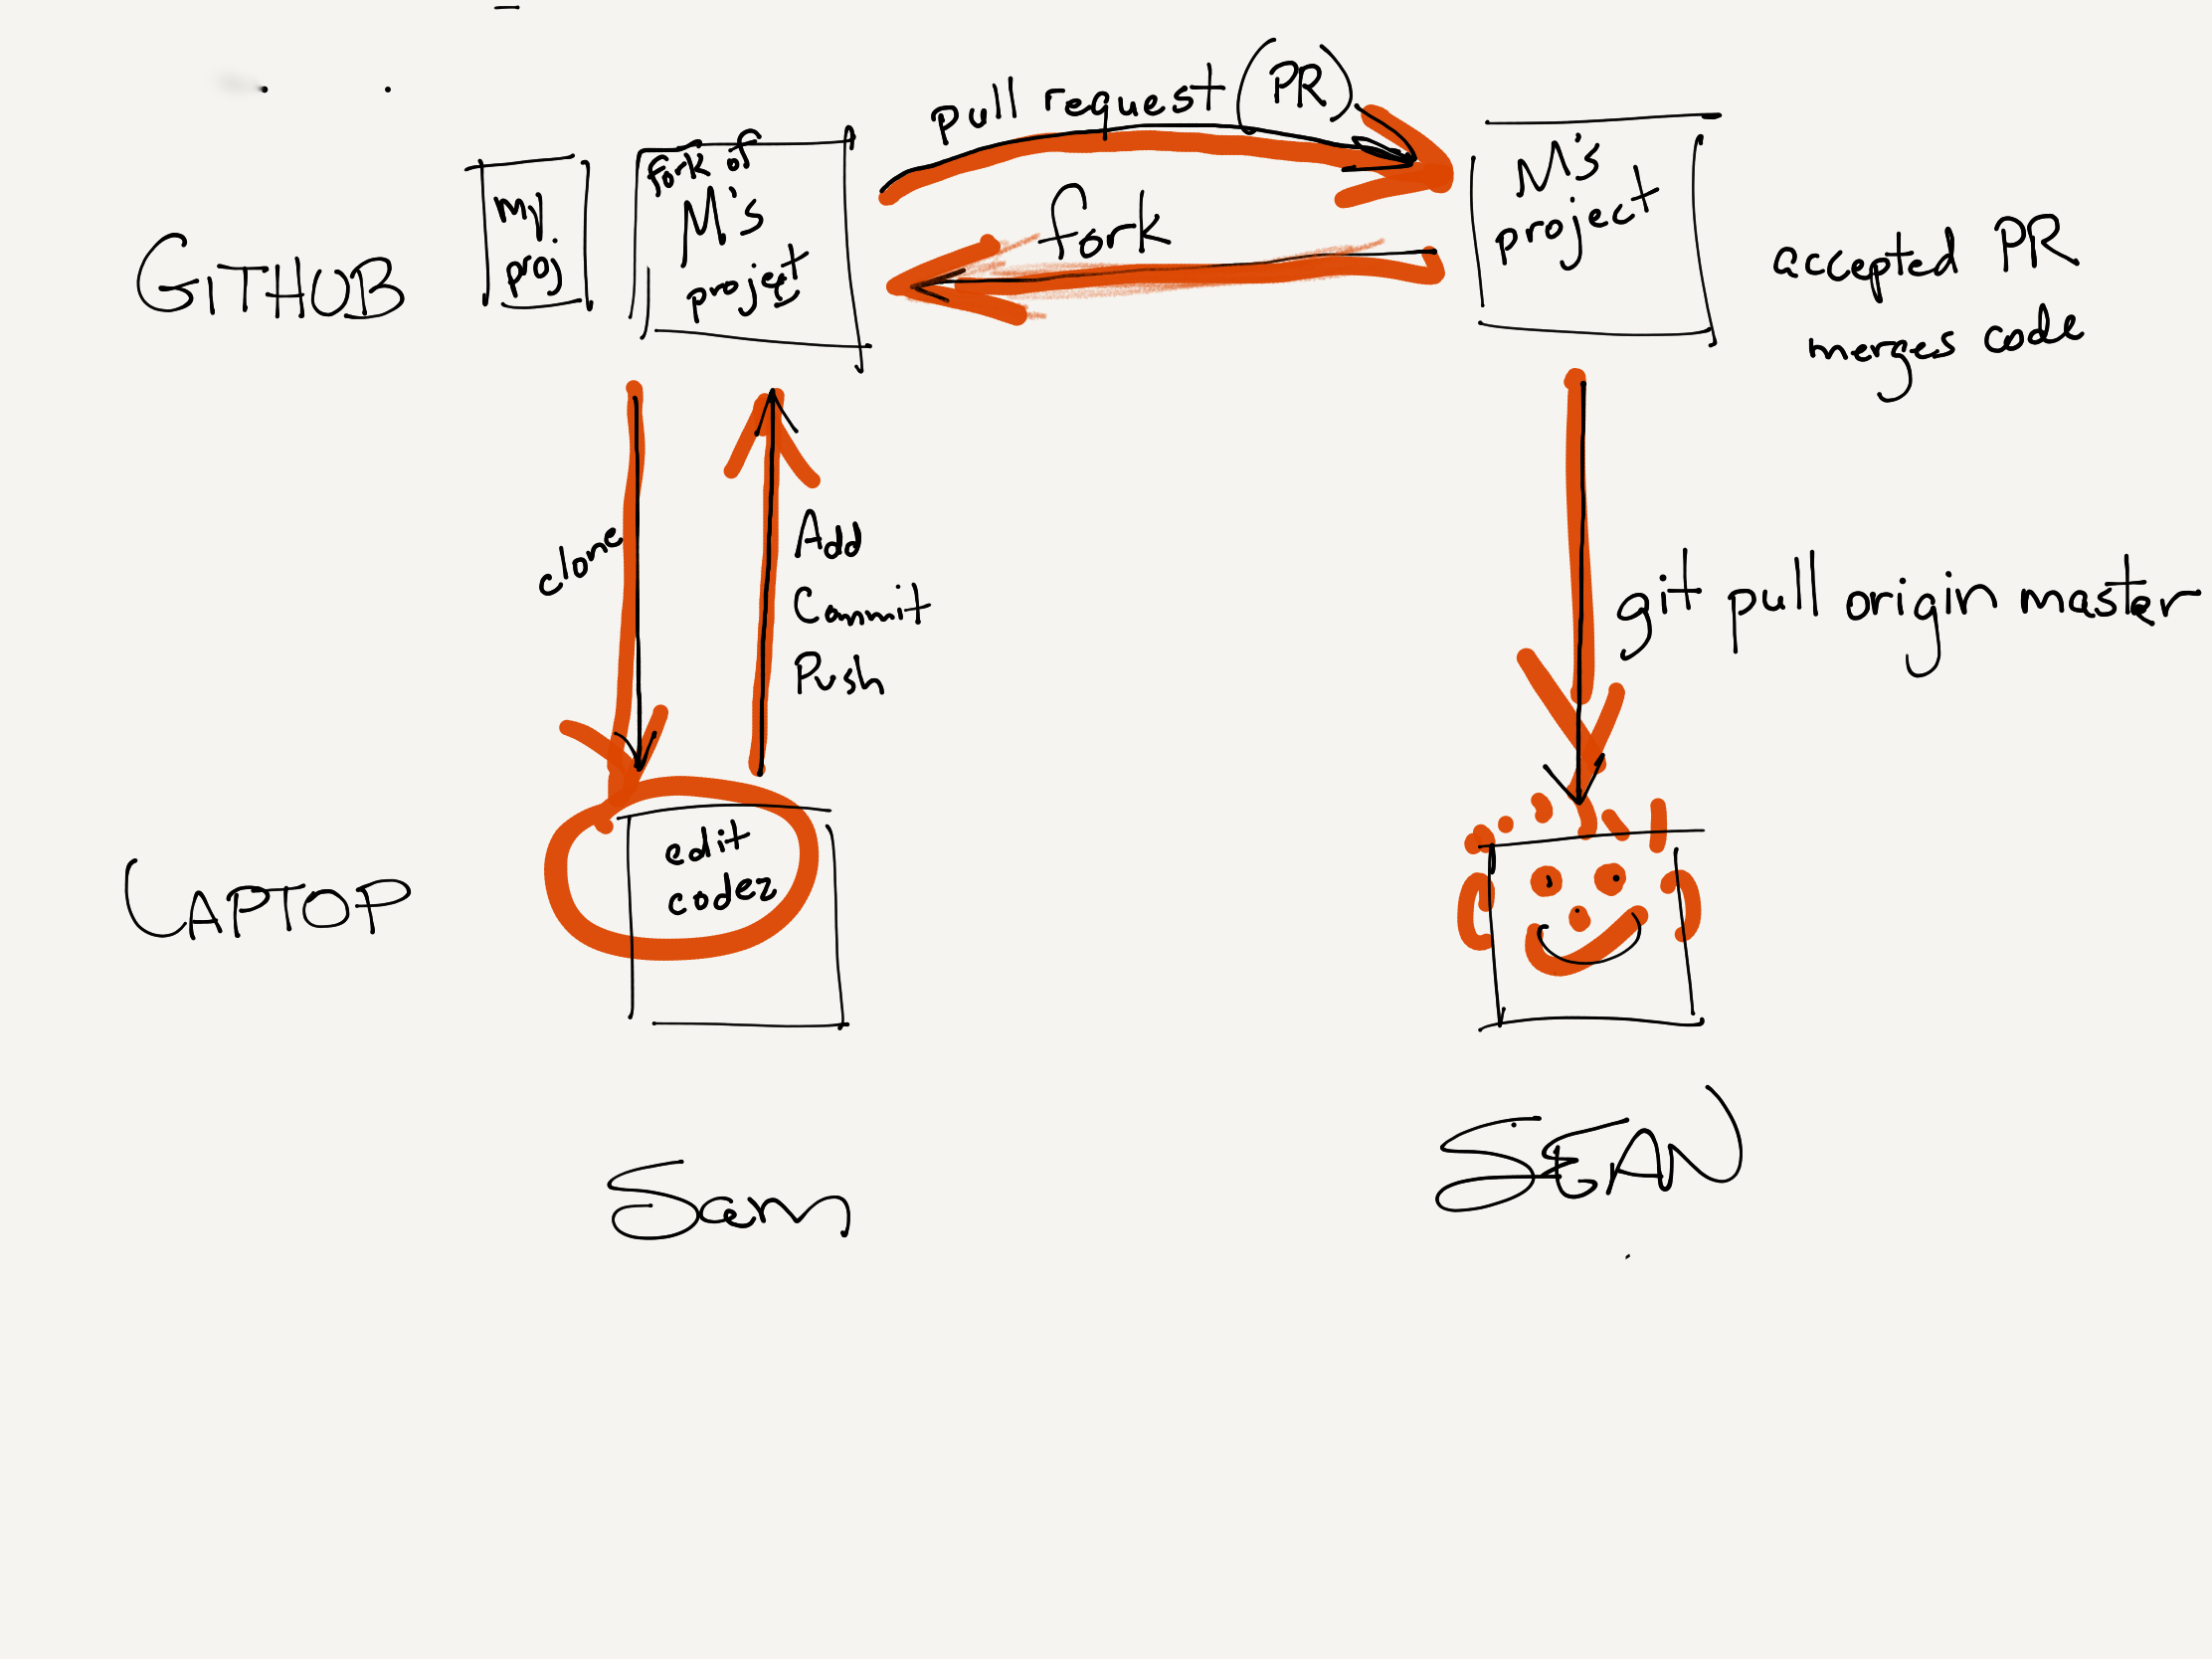 pull request (PR)
fork of
M's
project
my
proj
M's
project
fork
GITHUB
accepted PR
merges code
clone
Add
Commit
Push
git pull origin master
LAPTOP
edit
codez
Sam
SEAN